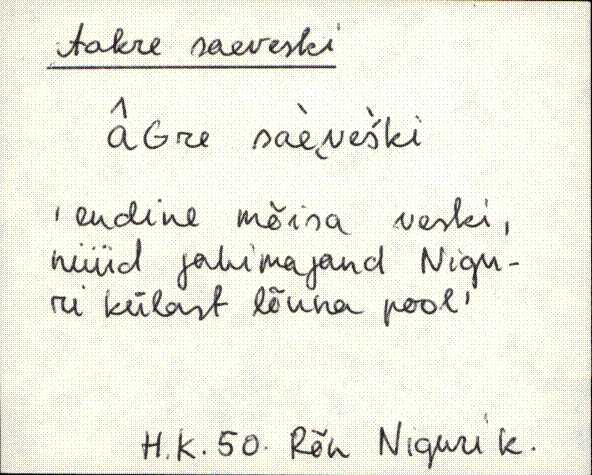 Aakre saeveski
âGre saèvèški
'endine mõisa veski,
nüüd jahimajand Nigu-
ri külast lõuna pool'
H.K. 50. Rõn Niguri k.